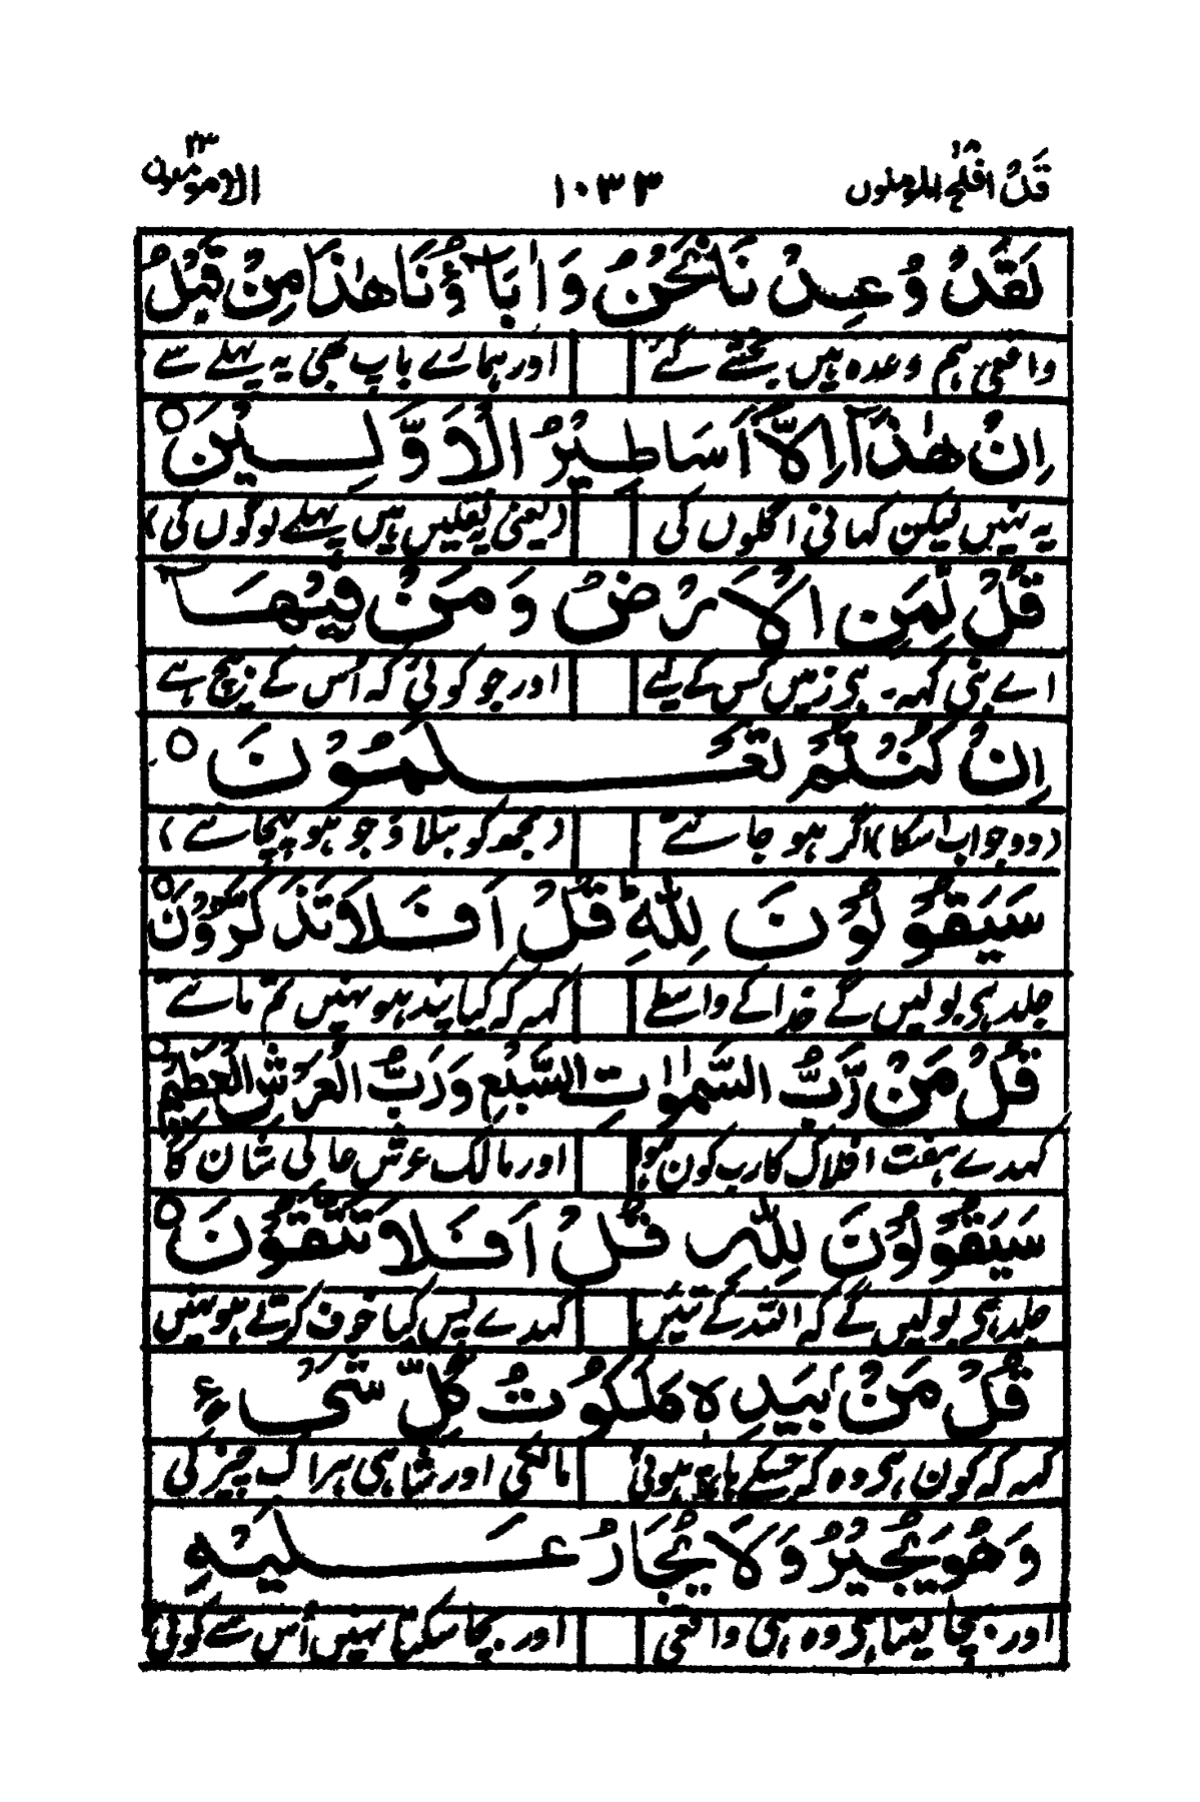 قَدْ افلح المومنون ١٨ ١٠٣٣ المومنون ٢٣
لَقَدْ وُعِدْنَا نَحْنُ وَاٰبَآؤُنَا هٰذَا مِنْ قَبْلُ
واقعی ہم وعدہ ہیں بخشے گئے اور ہمارے باپ بھی یہ پہلے سے
اِنْ هٰذَآ اِلَّآ اَسَاطِيْرُ الْاَوَّلِيْنَ ○
یہ نہیں لیکن کہانی اگلوں کی (یعنی نقلیں ہیں پہلے لوگوں کی)
قُلْ لِّمَنِ الْاَرْضُ وَمَنْ فِيْهَآ
اے نبی کہہ ہی زمیں کس کے لیے اور جو کوئی کہ اُس کے بیچ ہے
اِنْ كُنْتُمْ تَعْلَمُوْنَ ○
(دو جواب اسکا) اگر ہو جانتے (مجھ کو بتلا دو جو ہو پہچانتے)
سَيَقُوْلُوْنَ لِلّٰهِ ؕ قُلْ اَفَلَا تَذَكَّرُوْنَ ○
جلد ہی بولیں گے خدا کے واسطے کہہ کہ کیا پند ہو نہیں تم مانتے
قُلْ مَنْ رَّبُّ السَّمٰوٰتِ السَّبْعِ وَرَبُّ الْعَرْشِ الْعَظِيْمِ ○
کہدے ہفت افلاک کا رب کون ہو اور مالک عرش عالی شان کا
سَيَقُوْلُوْنَ لِلّٰهِ قُلْ اَفَلَا تَتَّقُوْنَ ○
جلد ہی بولیں گے کہ اللہ کے تئیں کہدے پس کیا خوف کرتے ہو نہیں
قُلْ مَنْ بِيَدِهٖ مَلَكُوْتُ كُلِّ شَیْءٍ
کہہ کہ کون ہی وہ کہ جسکے ہاتھ ہوئی مالکی اور شاہی ہر اک چیز کی
وَهُوَ يُجِيْرُ وَلَا يُجَارُ عَلَيْهِ
اور بچا لیتا ہی وہ ہی واقعی اور بچا سکتا نہیں اُس سے کوئی